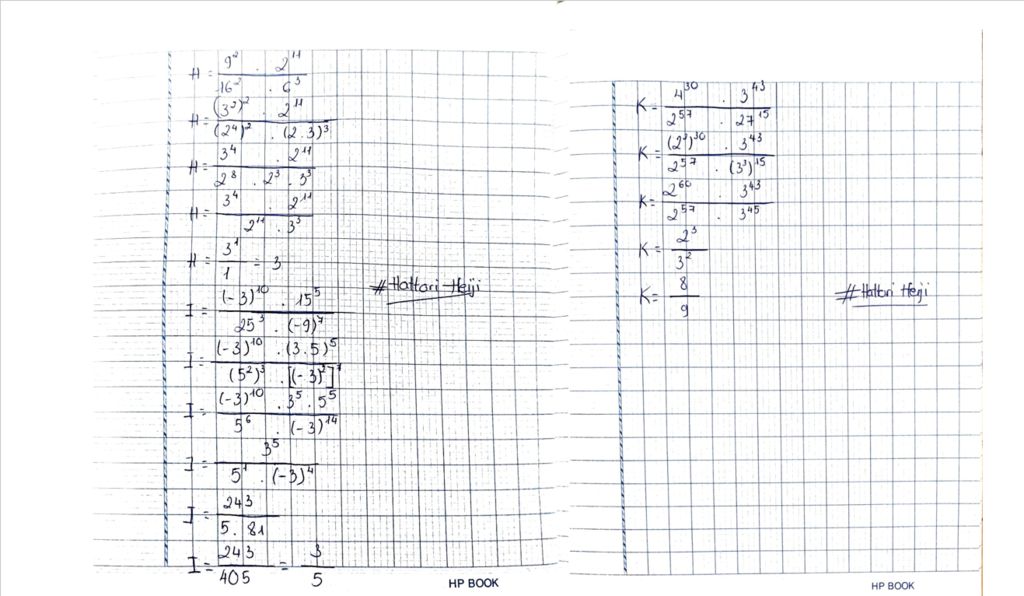 H = 9² . 2¹¹ / 16² . 6³
H = (3²)² . 2¹¹ / (2⁴)² . (2.3)³
H = 3⁴ . 2¹¹ / 2⁸ . 2³ . 3³
H = 3⁴ . 2¹¹ / 2¹¹ . 3³
H = 3¹ / 1 = 3
#Hattori Heiji
I = (-3)¹⁰ . 15⁵ / 25³ . (-9)⁷
I = (-3)¹⁰ . (3.5)⁵ / (5²)³ . [(-3)²]⁷
I = (-3)¹⁰ . 3⁵ . 5⁵ / 5⁶ . (-3)¹⁴
I = 3⁵ / 5¹ . (-3)⁴
I = 243 / 5.81
I = 243 / 405 = 3 / 5
HP BOOK
K = 4³⁰ . 3⁴³ / 2⁵⁷ . 27¹⁵
K = (2²)³⁰ . 3⁴³ / 2⁵⁷ . (3³)¹⁵
K = 2⁶⁰ . 3⁴³ / 2⁵⁷ . 3⁴⁵
K = 2³ / 3²
K = 8 / 9
#Hattori Heiji
HP BOOK